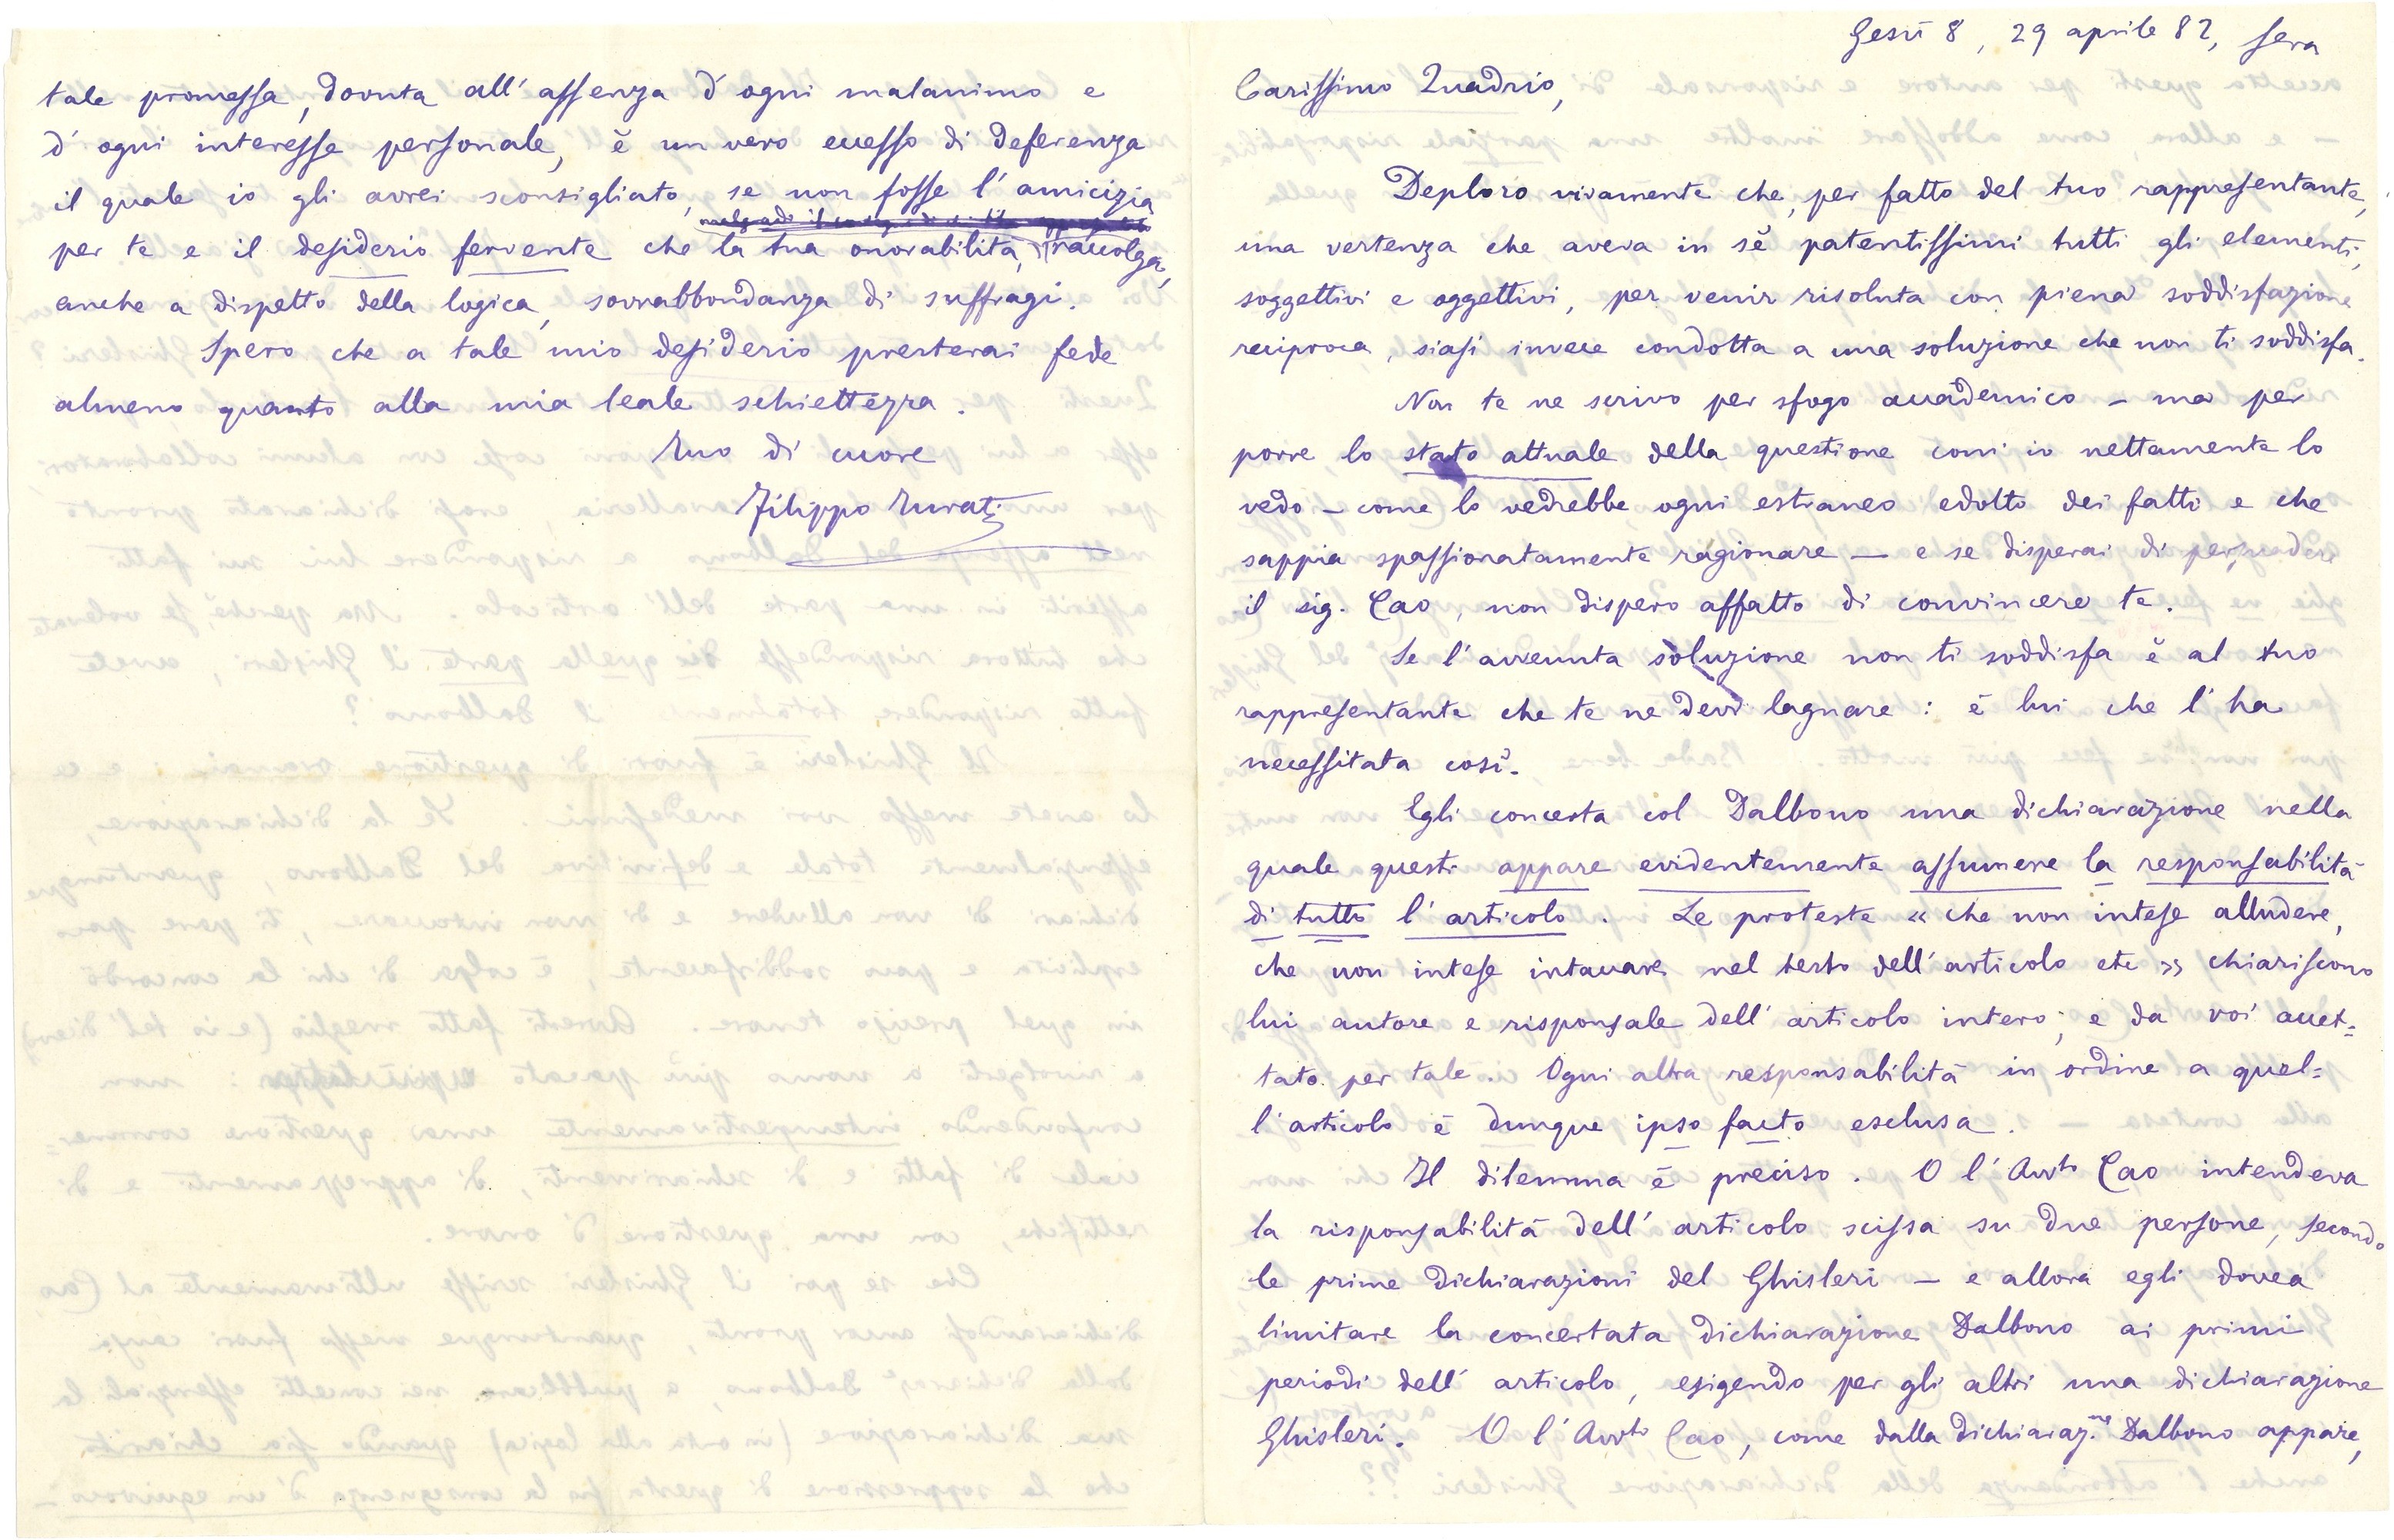 Gesù 8, 29 aprile 82, sera
Carissimo Quadrio,
Deploro vivamente che, per fatto del tuo rappresentante,
una vertenza che aveva in sè patentissimi tutti gli elementi,
soggettivi e oggettivi, per venir risoluta con piena soddisfazione
reciproca, siasi invece condotta a una soluzione che non ti soddisfa.
Non te ne scrivo per sfogo accademico – ma per
porre lo stato attuale della questione com' io nettamente lo
vedo – come lo vedrebbe ogni estraneo edotto dei fatti e che
sappia spassionatamente ragionare – e se disperai di persuadere
il sig. Cao, non dispero affatto di convincere te.
Se l'avvenuta soluzione non ti soddisfa è al tuo
rappresentante che te ne devi lagnare: è lui che l'ha
necessitata così.
Egli concerta col Dalbono una dichiarazione nella
quale questi appare evidentemente assumere la responsabilità
di tutto l'articolo. Le proteste « che non intese alludere,
che non intese intaccare nel testo dell'articolo etc » chiariscono
lui autore e risponsale dell'articolo intero; e da voi accet=
tato per tale. Ogni altra responsabilità in ordine a quel=
l'articolo è dunque ipso facto esclusa.
Il dilemma è preciso. O l'Avvto Cao intendeva
la risponsabilità dell'articolo scissa su due persone, secondo
le prime dichiarazioni del Ghisleri – e allora egli dovea
limitare la concertata dichiarazione Dalbono ai primi
periodi dell'articolo, esigendo per gli altri una dichiarazione
Ghisleri. O l'Avvto Cao, come dalla dichiaraz.ne Dalbono appare,
tale promessa, dovuta all'assenza d'ogni malanimo e
d'ogni interesse personale, è un vero eccesso di deferenza
il quale io gli avrei sconsigliato, se non fosse l'amicizia
per te e il desiderio fervente che la tua onorabilità, raccolga,
anche a dispetto della logica, sovrabbondanza di suffragi.
Spero che a tale mio desiderio presterai fede
almeno quanto alla mia leale schiettezza.
Tuo di cuore
Filippo Turati